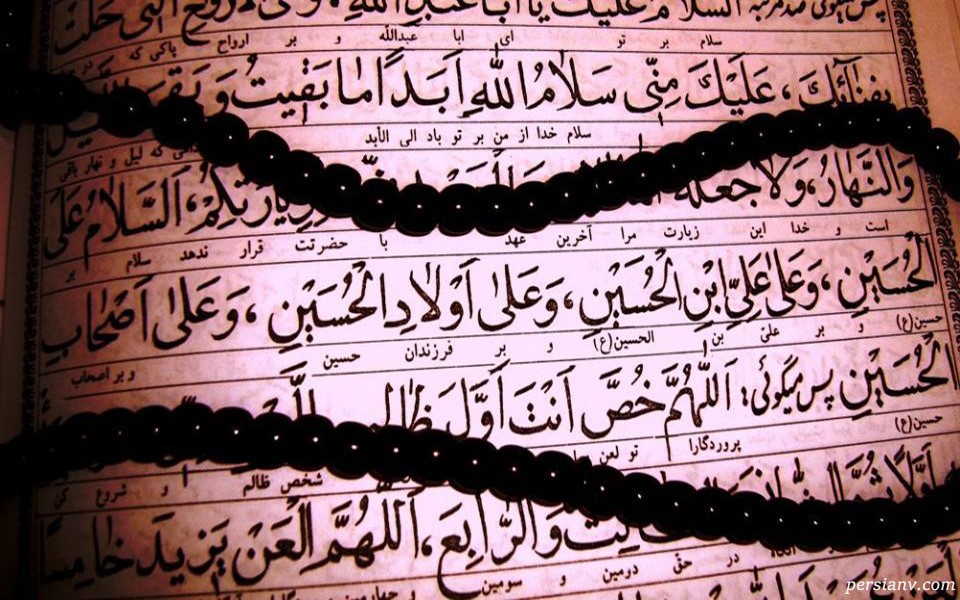 پس میگوئی صد مرتبه السلام علیک یا ابا عبدالله، وعلی الارواح التی حلت
سلام بر تو ای ابا عبدالله و بر ارواح پاکی که در
بِفِنآئِکَ، عَلَیْکَ مِنّی سَلامُ اللهِ اَبَداً ما بَقیتُ وَ بَقِیَ اللَّیْلُ
سلام خدا از من بر تو باد الی الأبد که لیل و نهار باقی
وَالنَّهارُ، وَلا جَعَلَهُ لِزِیارَتِکُمْ، اَلسَّلامُ عَلَی
است و خدا این زیارت مرا آخرین عهد با حضرتت قرار ندهد سلام بر
الْحُسَیْنِ، وَعَلی عَلِیِّ ابْنِ الْحُسَیْنِ، وَعَلی اَوْلادِ الْحُسَیْنِ، وَعَلی اَصْحابِ
حسین(ع) و بر علیّ بن الحسین(ع) و بر فرزندان حسین و بر اصحاب
الْحُسَیْنِ پس میگوئی: اَللّهُمَّ خُصَّ اَنْتَ اَوَّلَ ظالِمٍ
حسین(ع) پروردگارا تو لعن
اَوَّلاً ثُمَّ
شخص ظالم و شروع کن
وَالرّابِعَ، اَللّهُمَّ الْعَنْ یَزیدَ خامِساً
در حقّ دومین و سومین و چهارمین
persianv.com